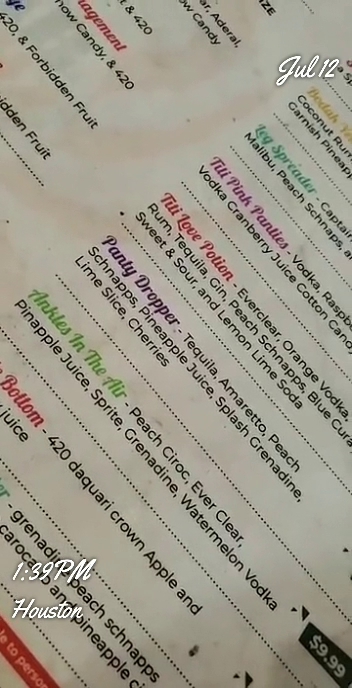 IZE
ar, Aderal,
ow Candy
t & 420
nagement
now Candy, & 420
420, & Forbidden Fruit
idden Fruit
Jul 12
Coconut Ru
Garnish Pineapp
Leg Spreader - Captai
Malibu, Peach Schnaps, a
Titi Pink Panties - Vodka, Raspb
Vodka Cranberry Juice Cotton Cand
Titi Love Potion - Everclear, Orange Vodka,
Rum, Tequila, Gin, Peach Schnapps, Blue Cura
Sweet & Sour, and Lemon Lime Soda
Panty Dropper - Tequila, Amaretto, Peach
Schnapps, Pineapple Juice, Splash Grenadine,
Lime Slice, Cherries
Ankles In The Air - Peach Ciroc, Ever Clear,
Pineapple Juice, Sprite, Grenadine, Watermelon Vodka
Bottom - 420 daquari crown Apple and
juice
er - grenadine peach schnapps
caroc and pineapple
le to person
$9.99
1:39PM
Houston